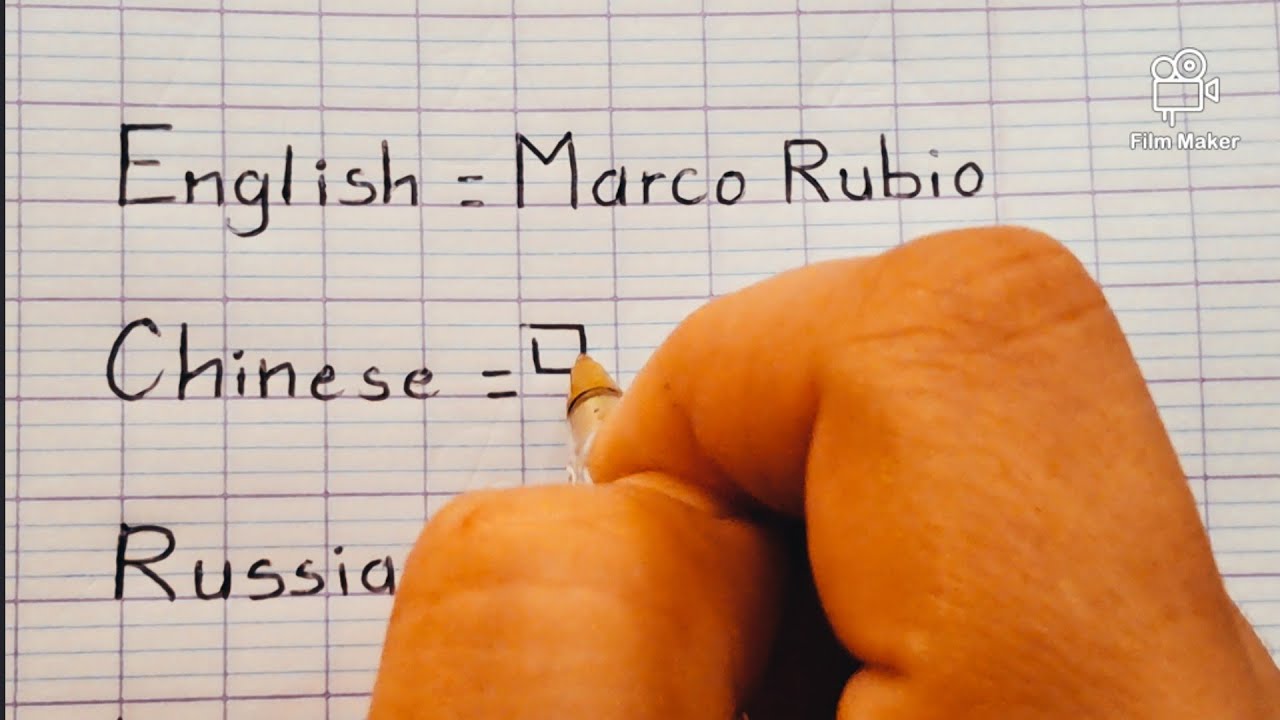 Film Maker
English = Marco Rubio
Chinese =
Russia